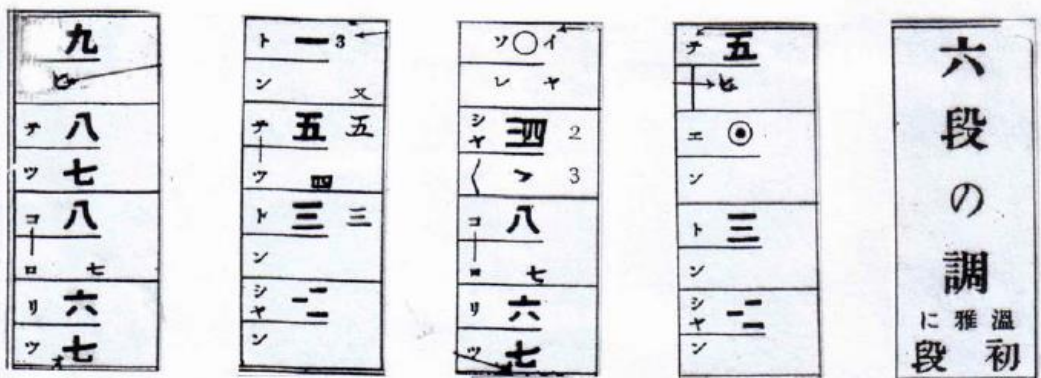 六段の調
溫雅に
初段
テ 五
ヒ
エ ◉
ン
ト 三
ン
シャ 一二
ン
ソ ○ イ
レ ヤ
シャ 三四 2
〱 ゝ 3
コ 八
ロ 七
リ 六
ツ 七
ト 一 3
ン 又
テ 五 五
ツ 四
ト 三 三
ン
シャ 一二
ン
九
ヒ
テ 八
ツ 七
コ 八
ロ 七
リ 六
ツ 七 オ